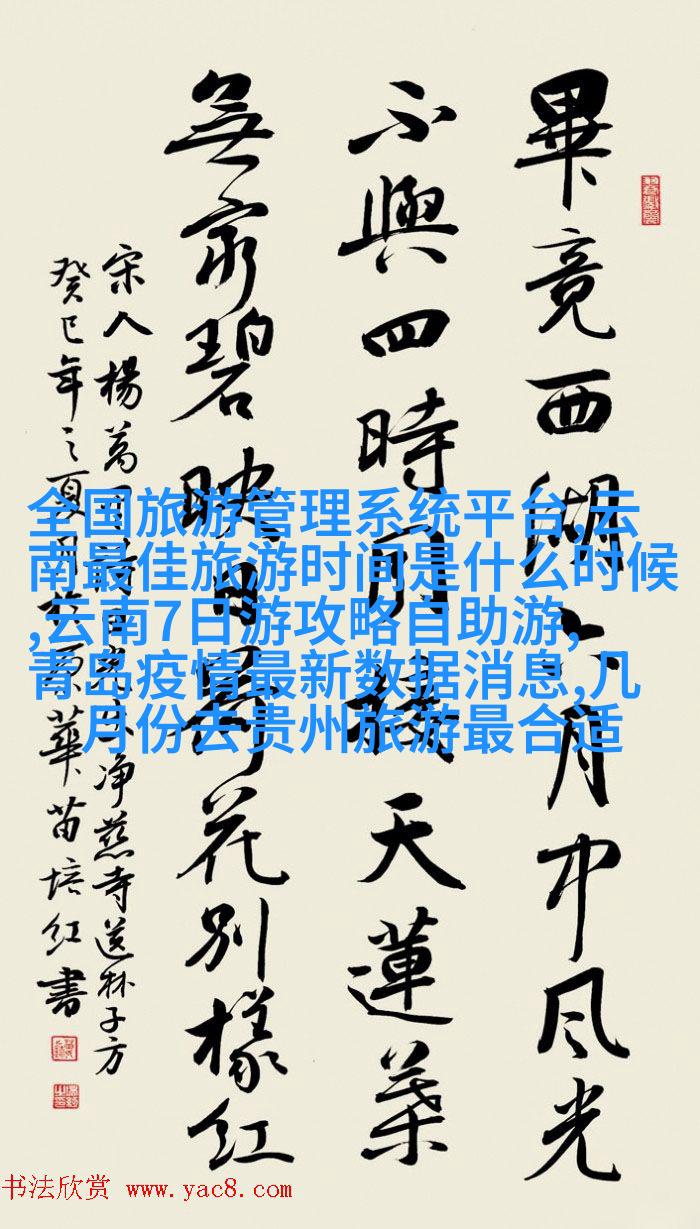 畢竟西湖六月中风光
不與四時同接天蓮葉
無窮碧映日荷花别樣红
宋人楊萬里詩曉出净慈寺送林子方
癸巳年之夏月於京華苗培红書
全国旅游管理系统平台,云
南最佳旅游时间是什么时候
,云南7日游攻略自助游,
青岛疫情最新数据消息,几
月份去贵州旅游最合适
书法欣赏 www.yac8.com